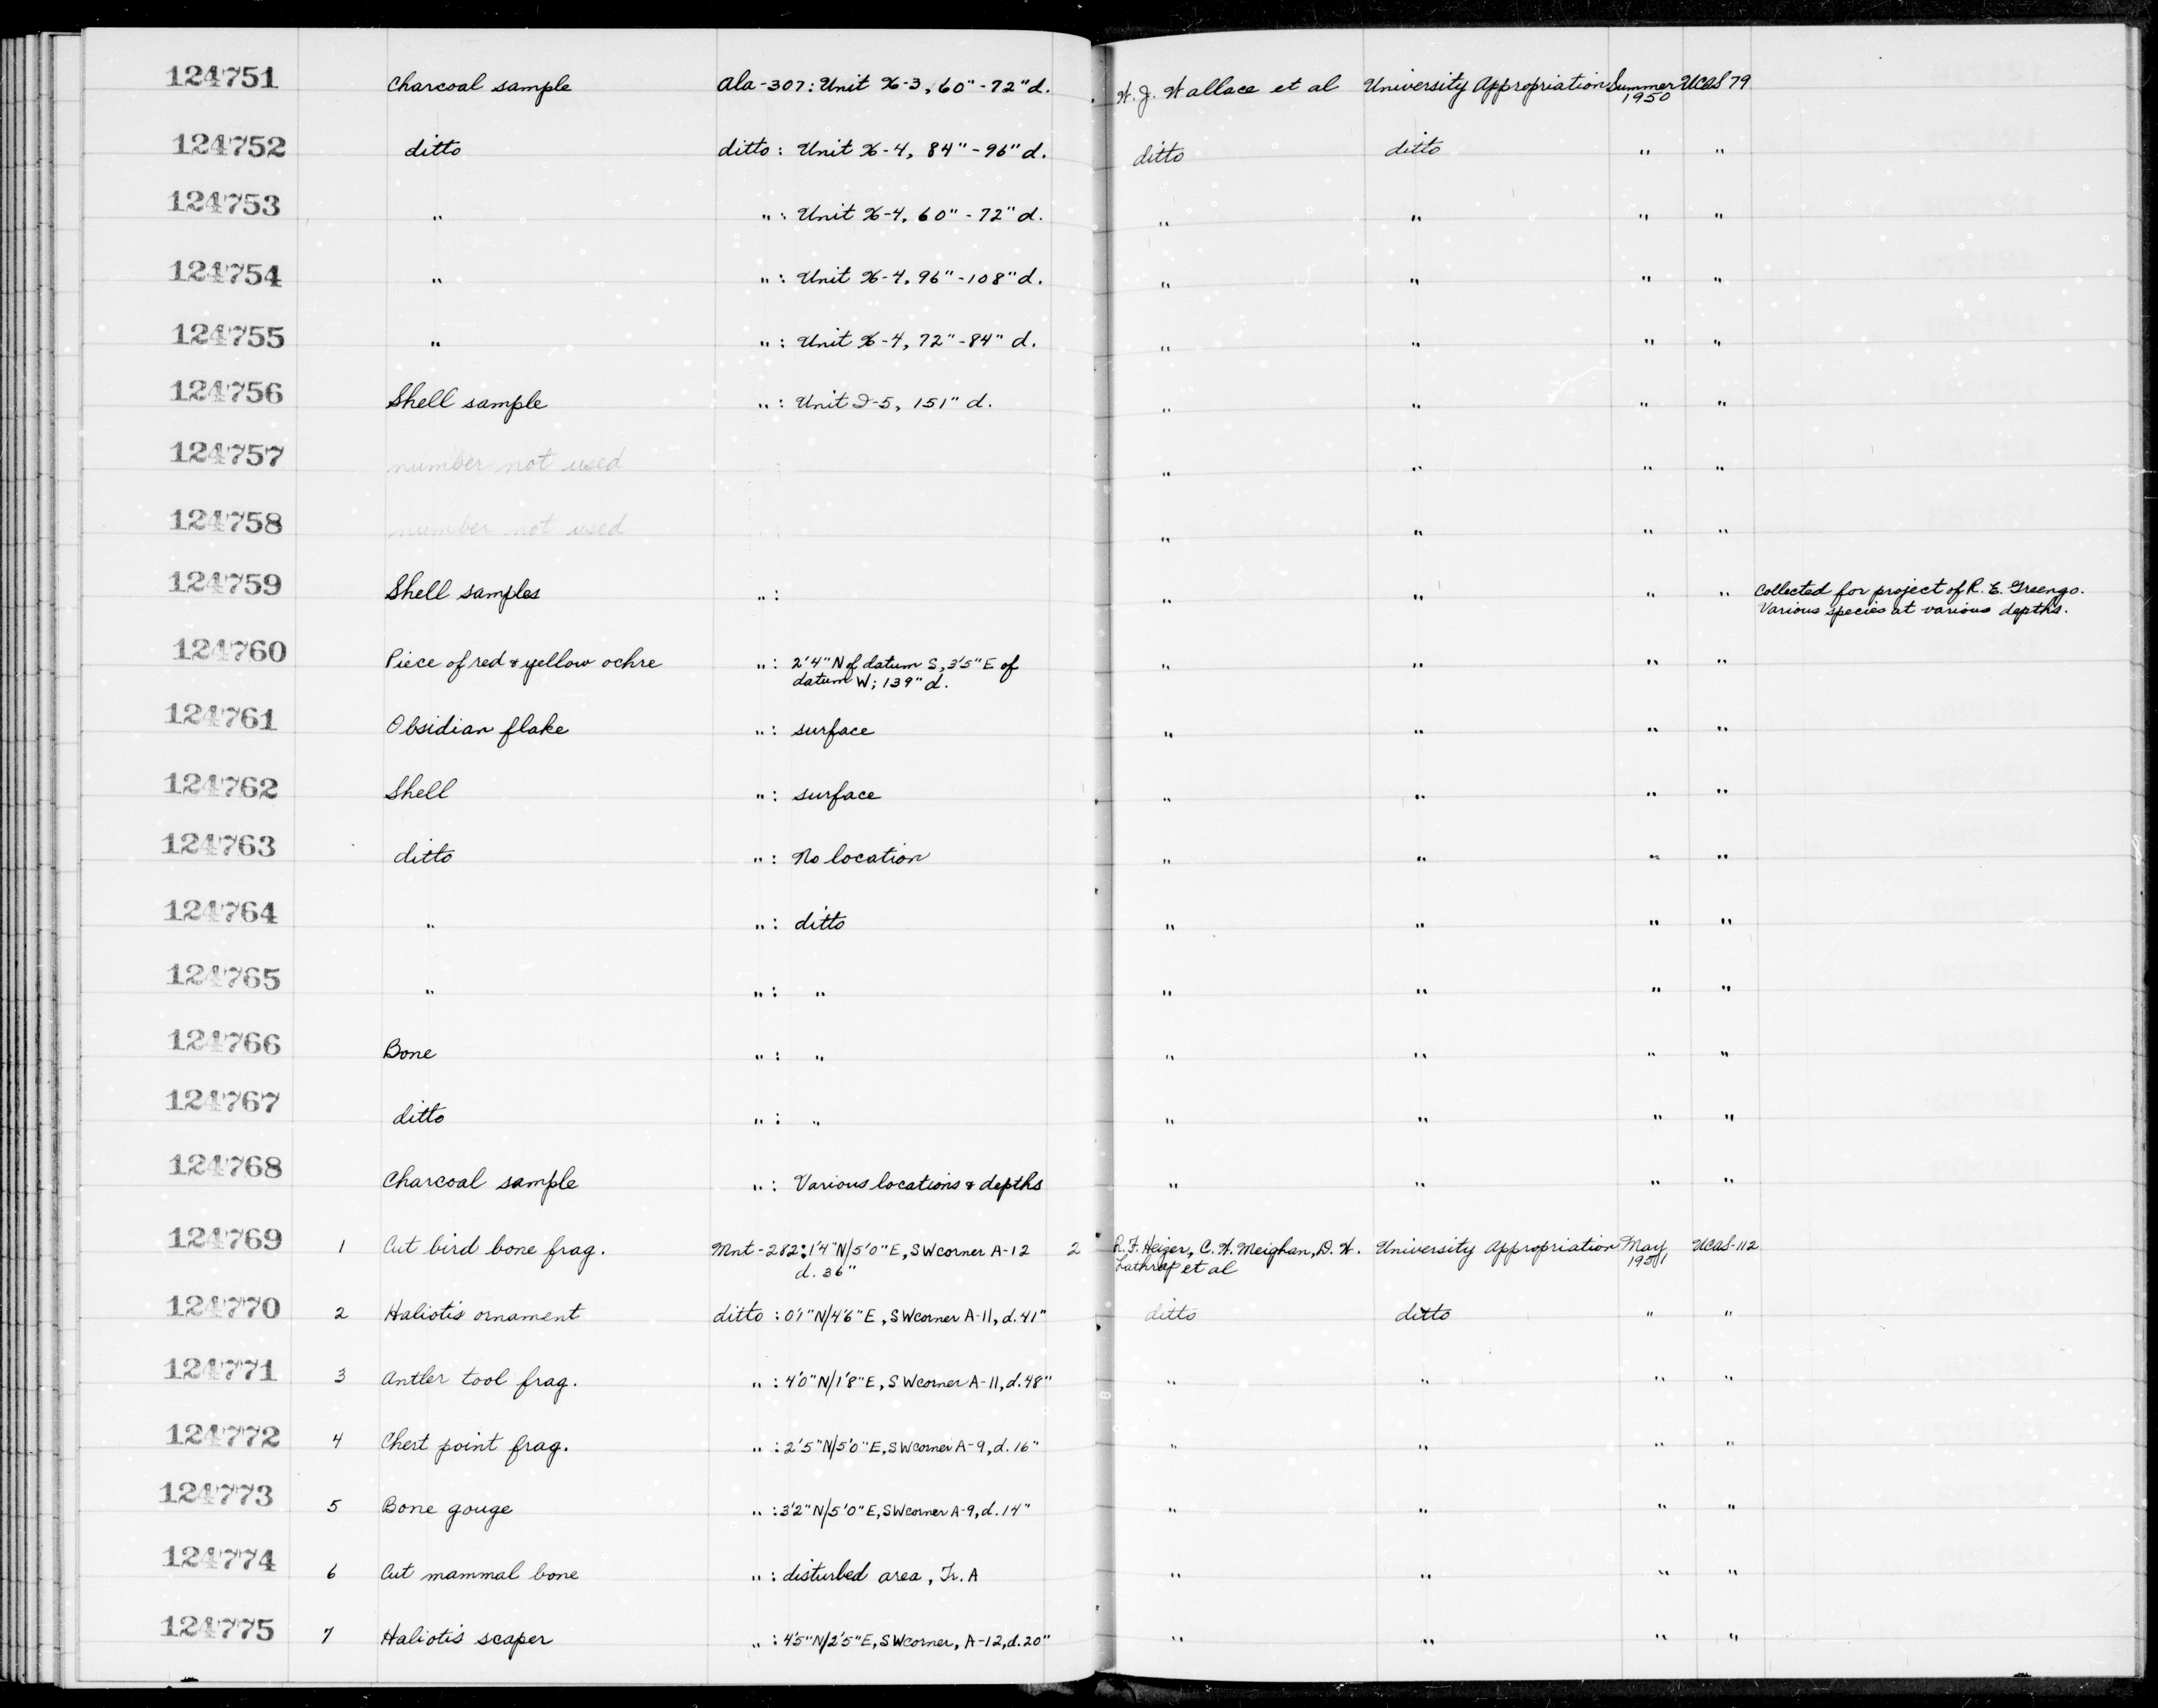 124751 Charcoal sample Ala-307: Unit X-3, 60"-72"d. W. J. Wallace et al University Appropriation Summer 1950 UCAS 79
124752 ditto ditto: Unit X-4, 84"-96"d. ditto ditto " "
124753 " ": Unit X-4, 60"-72"d. " " " "
124754 " ": Unit X-4, 96"-108"d. " " " "
124755 " ": Unit X-4, 72"-84" d. " " " "
124756 Shell sample ": Unit I-5, 151" d. " " " "
124757 number not used " " " "
124758 number not used " " " "
124759 Shell samples ": " " " " Collected for project of R. E. Greengo.
Various species at various depths.
124760 Piece of red & yellow ochre ": 2'4" N of datum S, 3'5" E of
datum W; 139" d. " " " "
124761 Obsidian flake ": surface " " " "
124762 Shell ": surface " " " "
124763 ditto ": No location " " " "
124764 " ": ditto " " " "
124765 " ": " " " " "
124766 Bone ": " " " " "
124767 ditto ": " " " " "
124768 Charcoal sample ": Various locations & depths " " " "
124769 1 Cut bird bone frag. Mnt-282: 1'4"N/5'0"E, SW corner A-12 2 R. F. Heizer, C. W. Meighan, D. W. University Appropriation May UCAS-112
d. 36" Lathrap et al 1951
124770 2 Haliotis ornament ditto: 0'1"N/4'6"E, SW corner A-11, d. 41" ditto ditto " "
124771 3 Antler tool frag. ": 4'0"N/1'8"E, SW corner A-11, d. 48" " " " "
124772 4 Chert point frag. ": 2'5"N/5'0"E, SW corner A-9, d. 16" " " " "
124773 5 Bone gouge ": 3'2"N/5'0"E, SW corner A-9, d. 14" " " " "
124774 6 Cut mammal bone ": disturbed area, Tr. A " " " "
124775 7 Haliotis scaper ": 4'5"N/2'5"E, SW corner, A-12, d. 20" " " " "